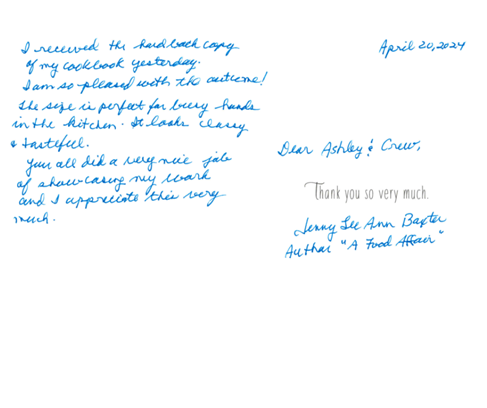 I received the hardback copy
of my cookbook yesterday.
I am so pleased with the outcome!
The size is perfect for busy hands
in the kitchen. It looks classy
& tasteful.
You all did a very nice job
of showcasing my work
and I appreciate this very
much.
April 20, 2024
Dear Ashley & Crew,
Thank you so very much.
Jenny Lee Ann Baxter
Author "A Food Affair"